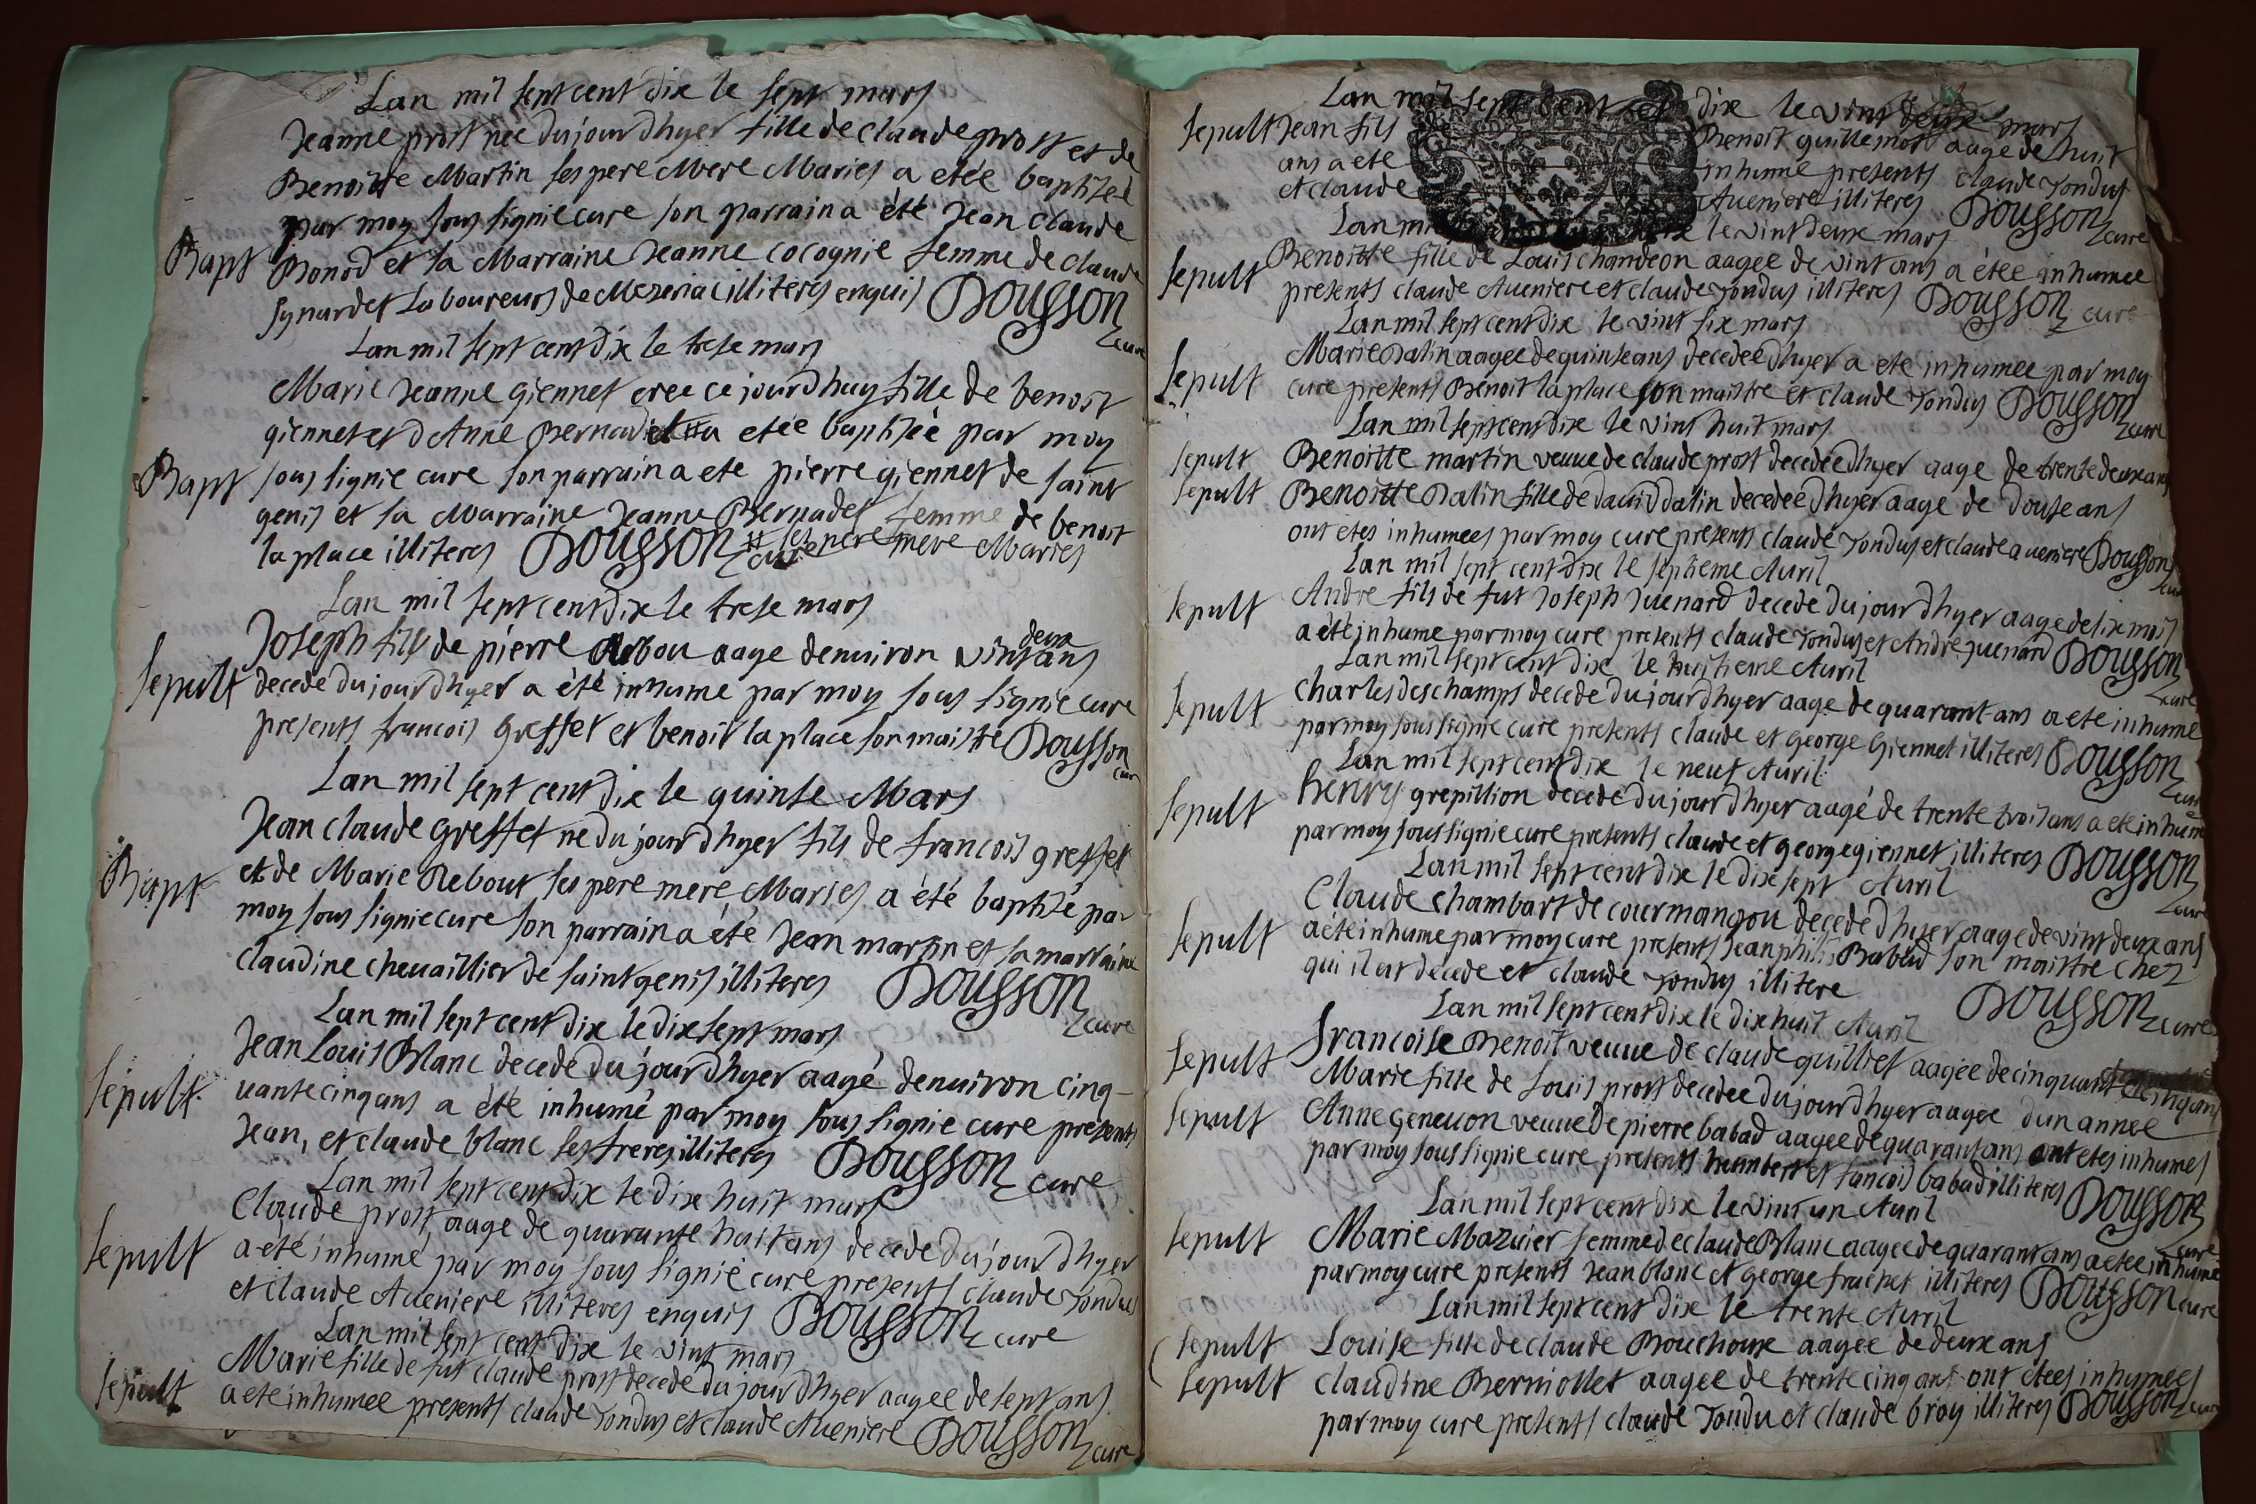 Lan mil sept cent dix le sept mars
Jeanne prost née dujourdhyer fille de claude prost et de
Benoitte Martin ses pere Mere Maries a etée baptisée
par moy sous signie cure son parrain a été Jean claude
Bapt Bonod et sa Marraine Jeanne cocognie femme de claude
synardet Laboureurs de Mezeria illiteres enquis Dousson cure
Lan mil sept cent dix le trese mars
Marie Jeanne giennet cree ce jourdhuy fille de benoit
giennet et dAnne Bernadet # a etée baptisée par moy
Bapt sous signie cure son parrain a ete pierre giennet de saint
genis et sa Marraine Jeanne Bernadet femme de benoit
la place illiteres Dousson cure # ses pere mere Maries
Lan mil sept cent dix le trese mars
Joseph fils de pierre Rebou aage denuiron vint deux ans
sepult decede dujourdhyer a été inhume par moy sous signie cure
presents francois greffet et benoit la place son maistre Dousson cure
Lan mil sept cent dix le quinse Mars
Jean claude greffet ne dujourdhyer fils de francois greffet
Bapt et de Marie Rebout ses pere mere Maries a été baptisé par
moy sous signie cure son parrain a été Jean martin et sa marraine
claudine cheuaillier de saint genis illiteres Dousson cure
Lan mil sept cent dix le dix sept mars
Jean Louis Blanc decede dujourdhyer aagé denuiron cinq-
sepult uante cinq ans a été inhumé par moy sous signie cure presents
Jean, et claude blanc ses freres illiteres Dousson cure
Lan mil sept cent dix le dix huit mars
Claude prost aage de quarante huit ans decede dujourdhyer
sepult a eté inhumé par moy sous signié cure presents claude Tondus
et claude Aueniere illiteres enquis Dousson cure
Lan mil sept cent dix le vint mars
Marie fille de fut claude prost decede dujourdhyer aagee de sept ans
sepult a ete inhumee presents claude Tondus et claude Aueniere Dousson cure
Lan mil sept cent dix le vint deux mars
sepult Jean fils de Benoit guillemot aage de huit
ans a eté inhumé presents claude Tondus
et claude Aueniere illiteres Dousson cure
Lan mi le vint deux mars
sepult Benoitte fille de Louis chandeon aagee de vint ans a étée inhumee
presents claude Aueniere et claude Tondus illiteres Dousson cure
Lan mil sept cent dix le vint six mars
sepult Marie Dalin aagee de quinse ans decedee dhyer a ete inhumee par moy
cure presents Benoit la place son maistre et claude Tondus Dousson cure
Lan mil sept cent dix le vint huit mars
sepult Benoitte martin veuue de claude prost decedée dhyer aage de trente deux ans
sepult Benoitte Dalin fille de dauid dalin decedée dhyer aage de douse ans
ont etes inhumees par moy cure presents claude Tondus et claude aueniere Dousson cure
Lan mil sept cent dix le septieme Auril
sepult André fils de fut Joseph Juenard decede dujourdhyer aage de six mois
a été inhume par moy cure presents claude Tondus et André Juenard Dousson cure
Lan mil sept cent dix le huitieme Auril
sepult charles deschamps decede dujourdhyer aage de quarant ans a ete inhume
par moy sous signie cure presents claude et george giennet illiteres Dousson cure
Lan mil sept cent dix le neuf Auril
sepult henry grepillion decede dujourdhyer aagé de trente trois ans a ete inhume
par moy sous signie cure presents claude et george giennet illiteres Dousson cure
Lan mil sept cent dix le dix sept Auril
Claude chambart de courmangou decede dhyer aage de vint deux ans
sepult a été inhume par moy cure presents Jean Babad son maistre chez
qui il est decede et claude Tondus illitere Dousson cure
Lan mil sept cent dix le dix huit Auril
sepult francoise Benoit veuue de claude quilliet aagée de cinquant
Marie fille de Louis prost decedee dujourdhyer aagee dun annee
sepult Anne Geneuon veuue de pierre babad aagee de quarant ans ont etes inhumes
par moy sous signie cure presents humbert et fancois babad illiteres Dousson cure
Lan mil sept cent dix le vint un Auril
sepult Marie Mazuier femme de claude Blanc aagee de quarant ans a etee inhume
par moy cure presents Jean blanc et george frachet illiteres Dousson cure
Lan mil sept cent dix le trente Auril
sepult Louise fille de claude Bouchoux aagee de deux ans
sepult claudine Berniollet aagee de trente cinq ans ont etees inhumees
par moy cure presents claude Tondu et claude broy illiteres Dousson cure